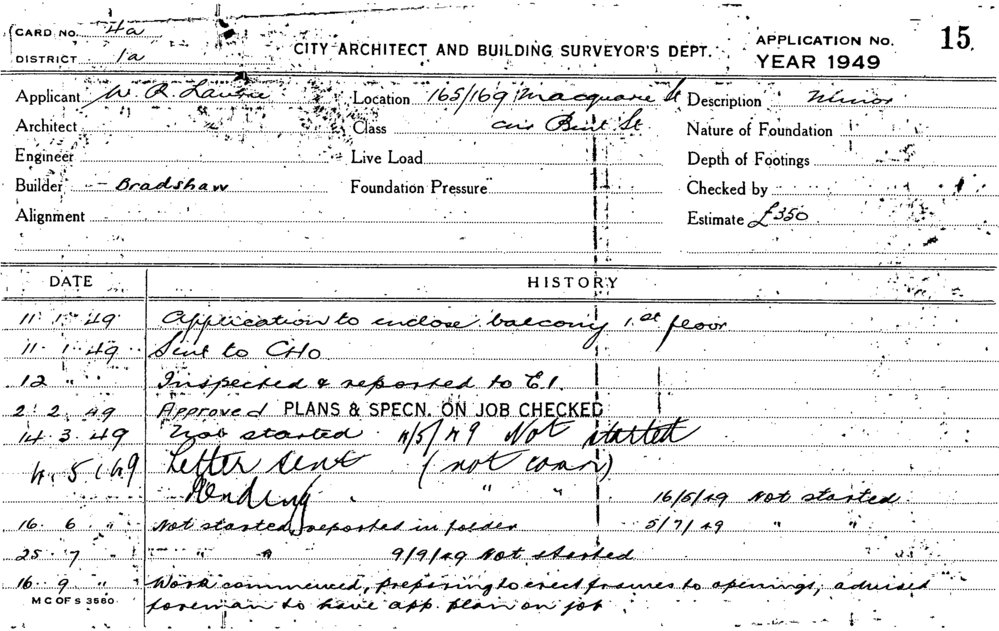 CARD No. 4a
CITY ARCHITECT AND BUILDING SURVEYOR'S DEPT.
APPLICATION No. 15.
DISTRICT 1a
YEAR 1949
Applicant W. R. Laurie Location 165/169 Macquarie St Description Minor
Architect Class cnr Bent St Nature of Foundation
Engineer Live Load Depth of Footings
Builder - Bradshaw Foundation Pressure Checked by
Alignment Estimate £350
DATE HISTORY
11. 1. 49 Application to enclose balcony 1st floor
11. 1. 49 Sent to CHO
12 " " Inspected & reported to E.I.
2. 2. 49 Approved PLANS & SPECN. ON JOB CHECKED
14. 3. 49 Not started 4/5/49 Not started
4. 5. 49 Letter sent (not comm)
Pending " " 16/5/49 Not started
16. 6 " Not started, reported in folder 5/7/49 " "
25. 7 " " " 9/9/49 Not started
16. 9 " Work commenced, preparing to erect frames to openings, advised
foreman to have app. plan on job.
M C OF S 3580